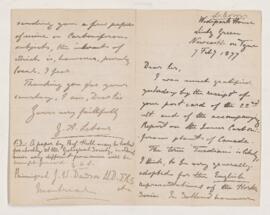 sending you a few papers
of mine on Carboniferous
subjects, the interest of
which is, however, purely
local, I fear.
Thanking you for your
courtesy, I am, Dear Sir
Yours very faithfully
G. A. Lebour
P.S. A paper by Prof. Hull
Principal J. W. Dawson LL.D. F.R.S.
Montreal
Woodpark House
Low Green
Newcastle on Tyne
7 Feby 1877
Dear Sir,
I was much gratified
yesterday by the receipt of
your post card of the 22nd
ult. and of the accompanying
Report on the Lower Carbon-
iferous plants of Canada.
The term Tuedian is likely,
I think, to be very generally
adopted for the English
representatives of the Horton
Series. In Scotland however